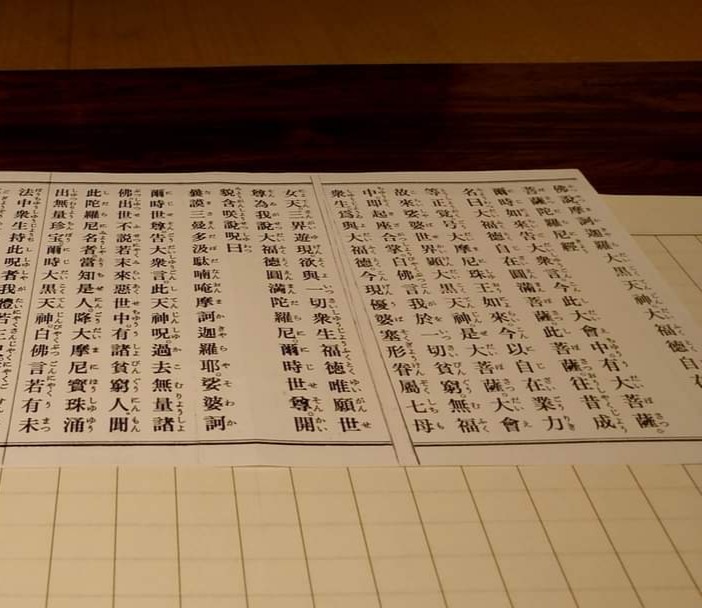 佛說摩訶迦羅大黑天神大福德自在
菩薩陀羅尼經
爾時如來告大衆言今此大會中有大菩薩
名曰大福德自在圓滿菩薩此菩薩往昔成
等正覺号大摩尼珠王如來今以自在業力
故來娑婆世界顯大黑天神是大菩薩大會
中即起座合掌白佛言我於一切貧窮無福
衆生爲與大福德今現優婆塞形眷屬七母
女天三界遊現欲與一切衆生福德唯願世
尊為我說大福德圓滿陀羅尼爾時世尊開
貌含咲說呪曰
曩謨三曼多汲駄喃唵摩訶迦羅耶娑婆訶
爾時世尊告大衆言此天神呪過去無量諸
佛出世不說若末來惡世中有諸貧窮人聞
此陀羅尼名者當知是人降大摩尼寶珠涌
出無量珍宝爾時大黑天神白佛言若有未
法中衆生持此呪者我體若三